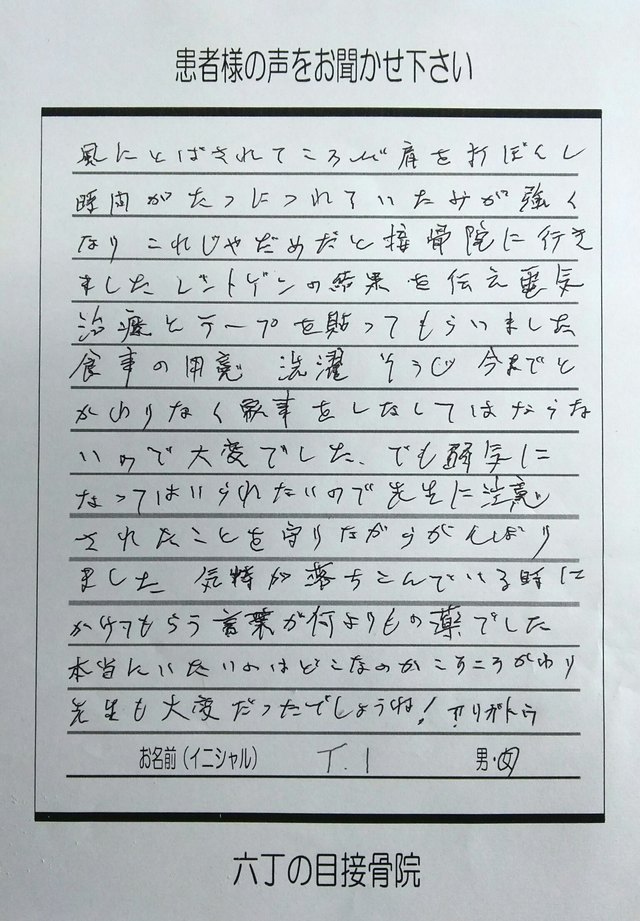 患者様の声をお聞かせ下さい
風にとばされてころび肩を打ぼくし
時間がたつにつれていたみが強く
なり これじゃだめだと接骨院に行き
ました レントゲンの結果を伝え電気
治療とテープを貼ってもらいました
食事の用意 洗濯 そうじ 今までと
かわりなく家事をしなくてはならな
いので大変でした、でも弱気に
なってはいられないので先生に注意
されたことを守りながらがんばり
ました 気持が落ちこんでいる時に
かけてもらう言葉が何よりもの薬でした
本当にいたいのはどこなのかころころかわり
先生も大変だったでしょうね! アリガトウ
お名前(イニシャル) T.I 男・女
六丁の目接骨院